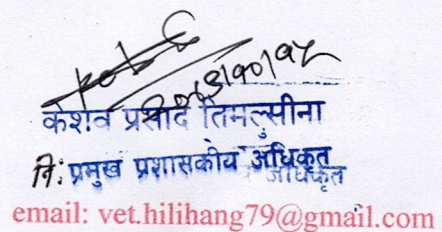 केशव प्रसाद तिमल्सीना
नि: प्रमुख प्रशासकीय अधिकृत
email: vet.hilihang79@gmail.com